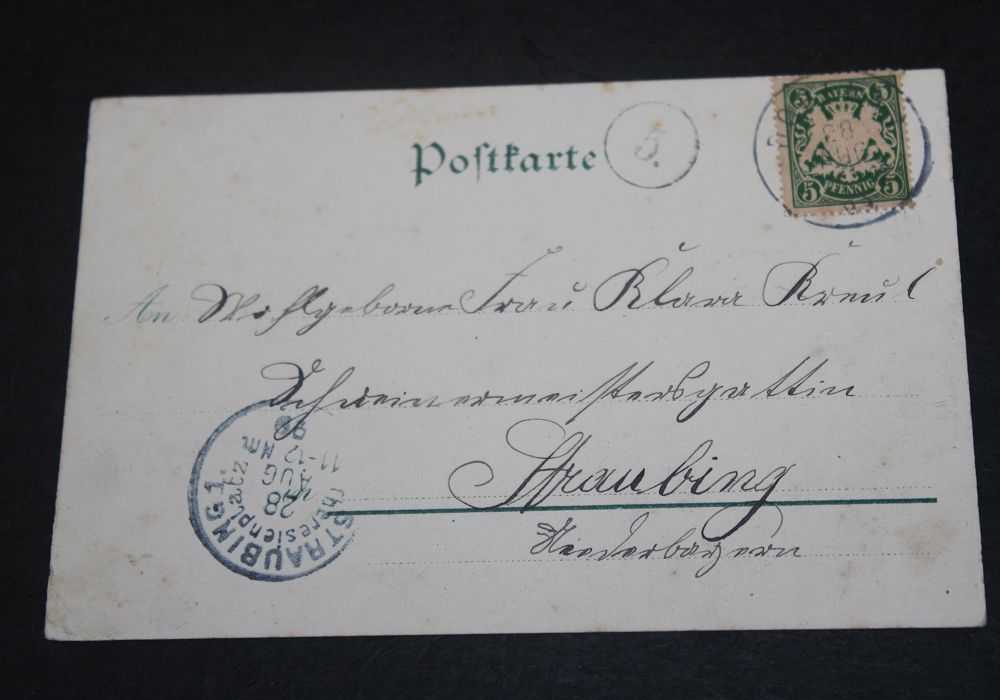 Postkarte
5.
5 BAYERN 5
28
AUG
5 PFENNIG 5
An Wohlgeborne Frau Klara Kreul
Schreinermeistersgattin
Straubing
Niederbayern
STRAUBING 1.
Theresienplatz
28
AUG
11-12 Nm
98